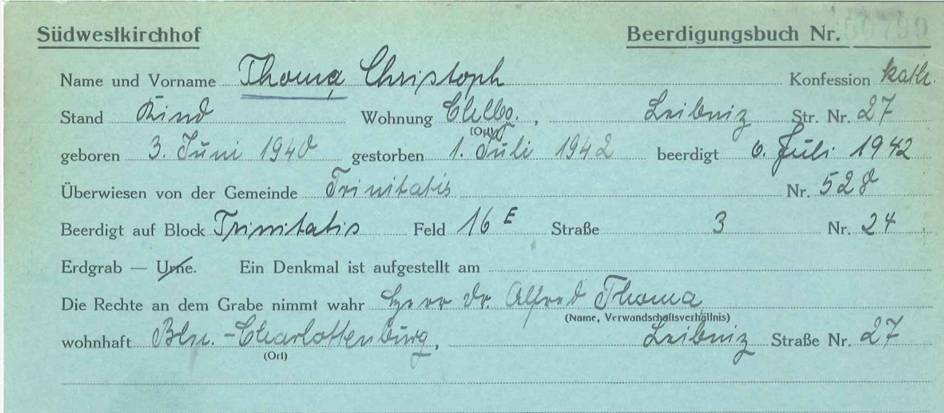 Südwestkirchhof Beerdigungsbuch Nr. 60799
Name und Vorname Thoma Christoph Konfession kath.
Stand Kind Wohnung Chlbg., Leibniz Str. Nr. 27
(Ort)
geboren 3. Juni 1940 gestorben 1. Juli 1942 beerdigt 6. Juli 1942
Überwiesen von der Gemeinde Trinitatis Nr. 528
Beerdigt auf Block Trinitatis Feld 16 E Straße 3 Nr. 24
Erdgrab — Urne. Ein Denkmal ist aufgestellt am
Die Rechte an dem Grabe nimmt wahr Herr Dr. Alfred Thoma
(Name, Verwandschaftsverhältnis)
wohnhaft Bln.-Charlottenburg, Leibniz Straße Nr. 27
(Ort)